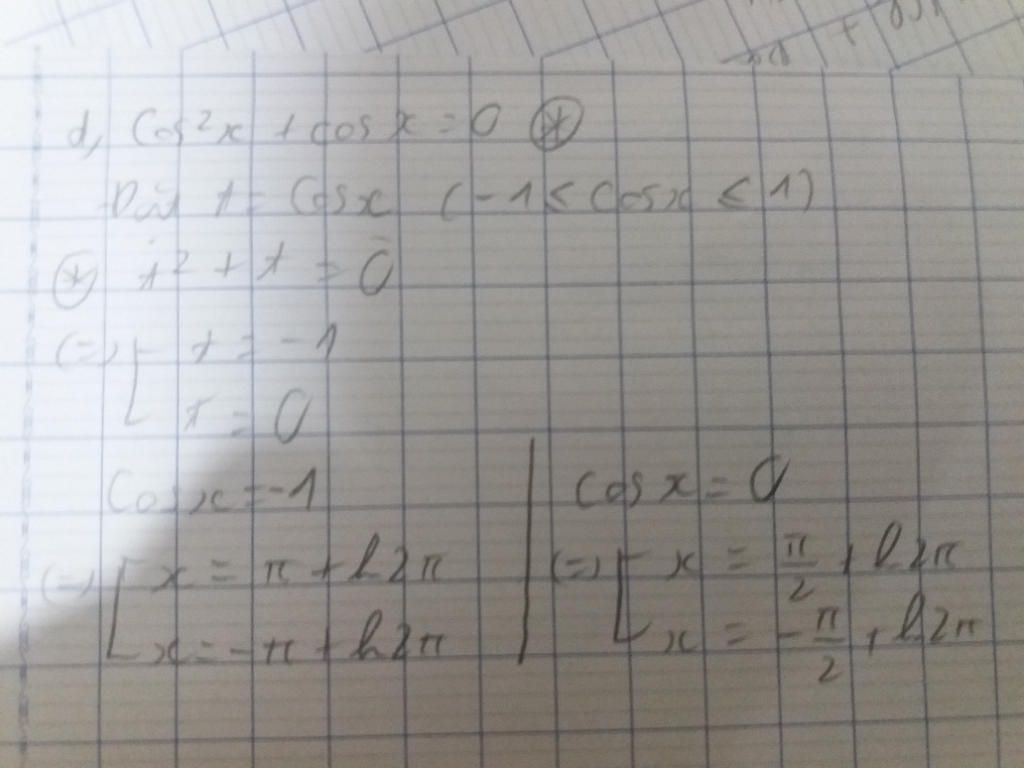 d, Cos²x + cos x = 0 ⊛
Đặt t = Cosx (-1 ≤ cosx ≤ 1)
⊛ t² + t = 0
(=) [ t = -1
t = 0
Cosx = -1
(=) [ x = π + k2π
x = -π + k2π
cos x = 0
(=) [ x = π/2 + k2π
x = -π/2 + k2π